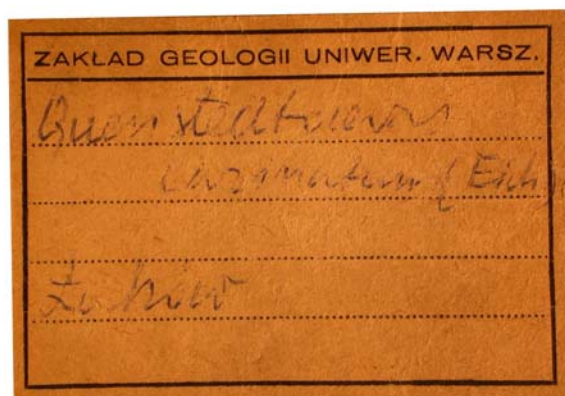 ZAKŁAD GEOLOGII UNIWER. WARSZ.
Quenstedtoceras
carinatum (Eich.)
Łuków